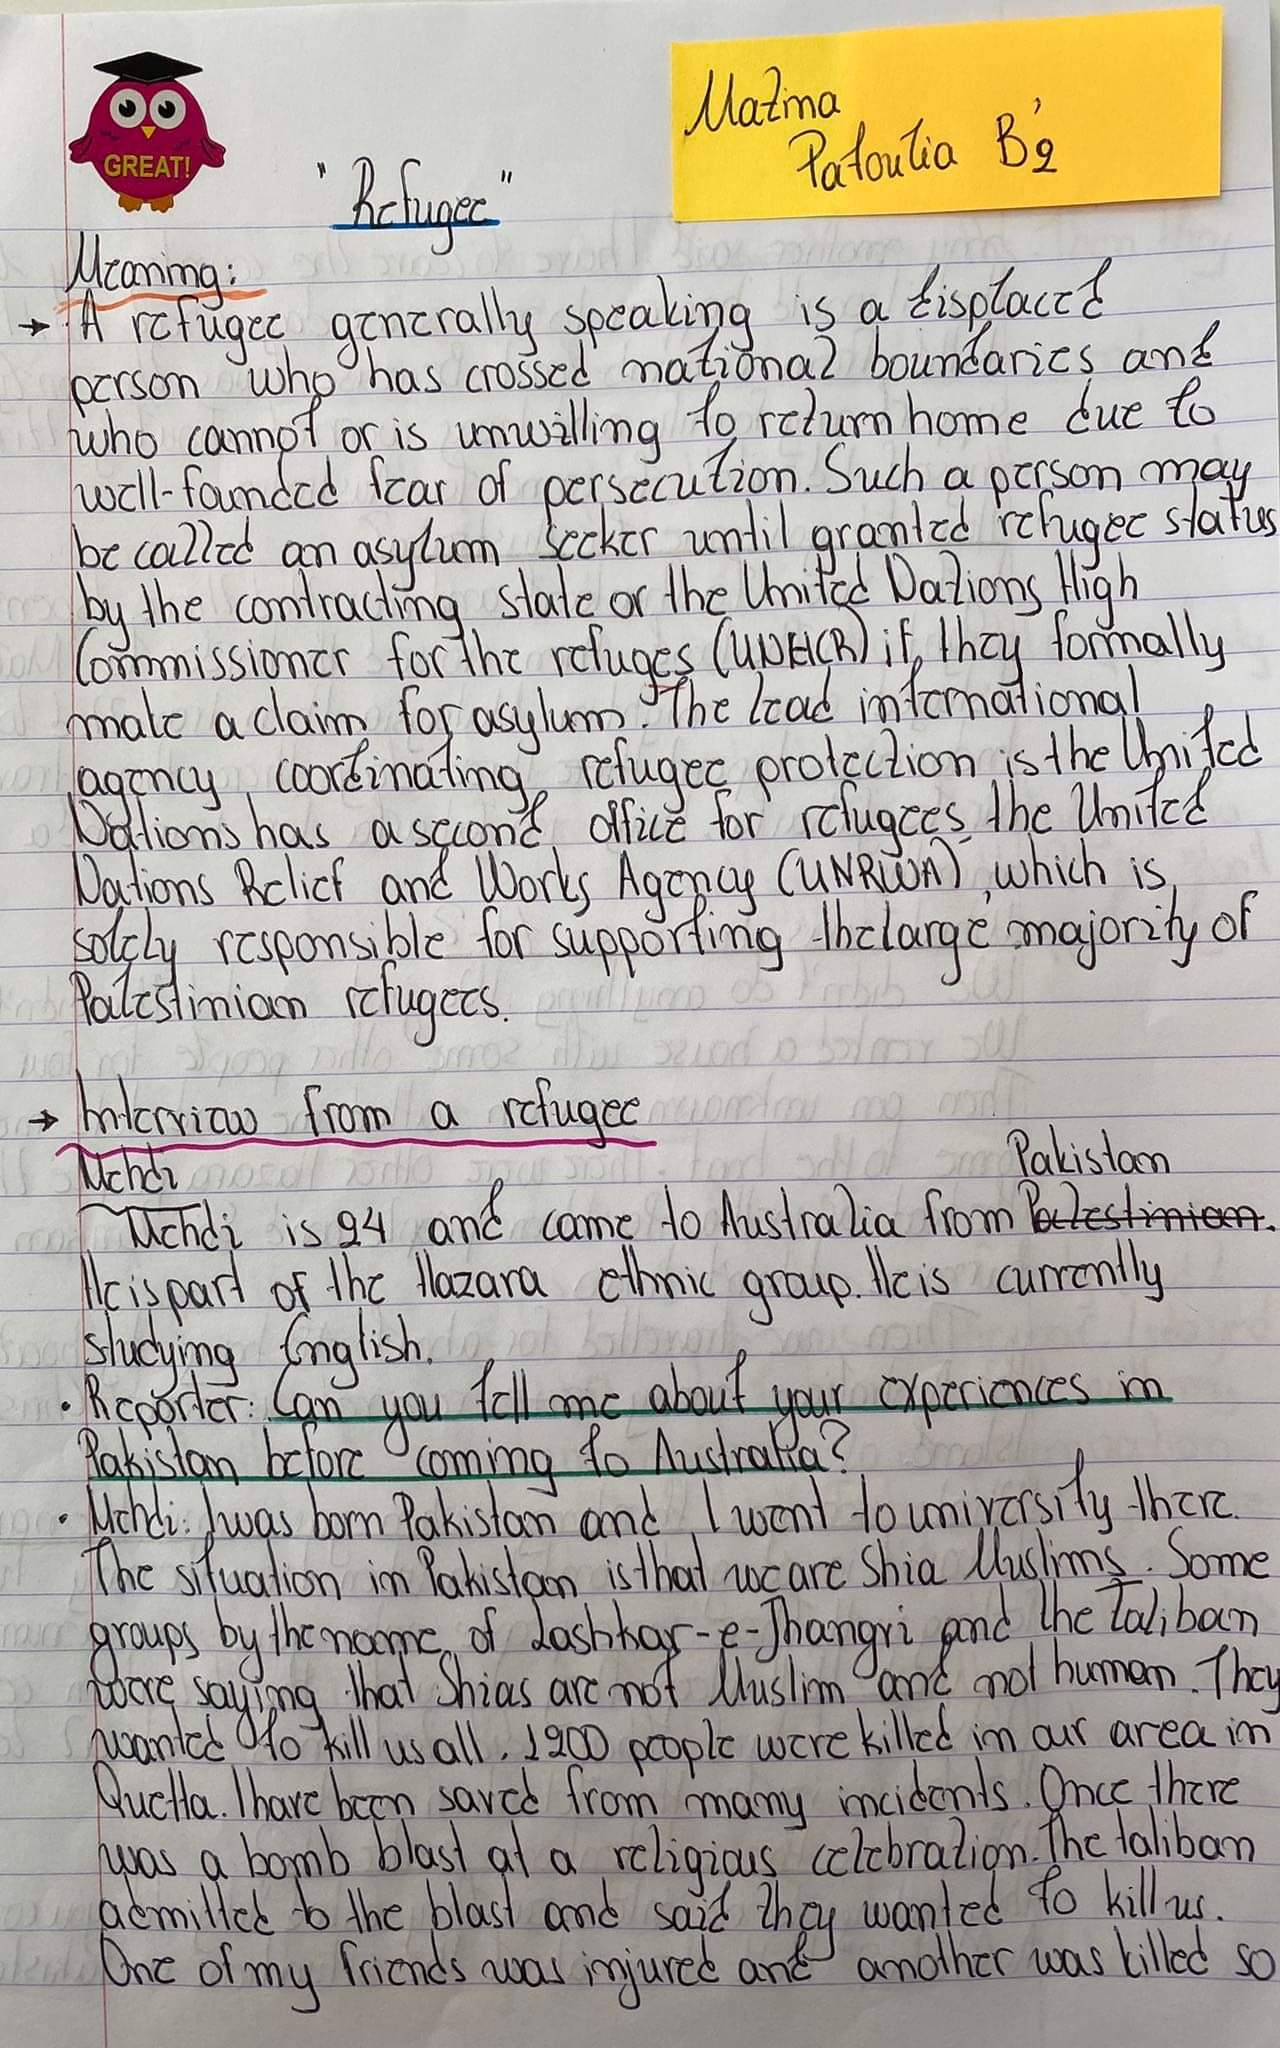 GREAT!
Matina
Patoulia B'2
"Refugee"
Meaning:
→ A refugee generally speaking is a displaced
person who has crossed national boundaries and
who cannot or is unwilling to return home due to
well-founded fear of persecution. Such a person may
be called an asylum seeker until granted refugee status
by the contracting state or the United Nations High
Commissioner for the refuges (UNHCR) if they formally
make a claim for asylum. The lead international
agency coordinating refugee protection is the United
Nations has a second office for refugees, the United
Nations Relief and Works Agency (UNRWA), which is
solely responsible for supporting the large majority of
Palestinian refugees.
→ Interview from a refugee
Mehdi
Pakistan
Mehdi is 24 and came to Australia from Palestinian.
He is part of the Hazara ethnic group. He is currently
studying English.
• Reporter: Can you tell me about your experiences in
Pakistan before coming to Australia?
• Mehdi: I was born Pakistan and I went to university there.
The situation in Pakistan is that we are Shia Muslims. Some
groups by the name of Lashkar-e-Jhangri and the Taliban
were saying that Shias are not Muslim and not human. They
wanted to kill us all. 1200 people were killed in our area in
Quetta. I have been saved from many incidents. Once there
was a bomb blast at a religious celebration. The taliban
admitted to the blast and said they wanted to kill us.
One of my friends was injured and another was killed so